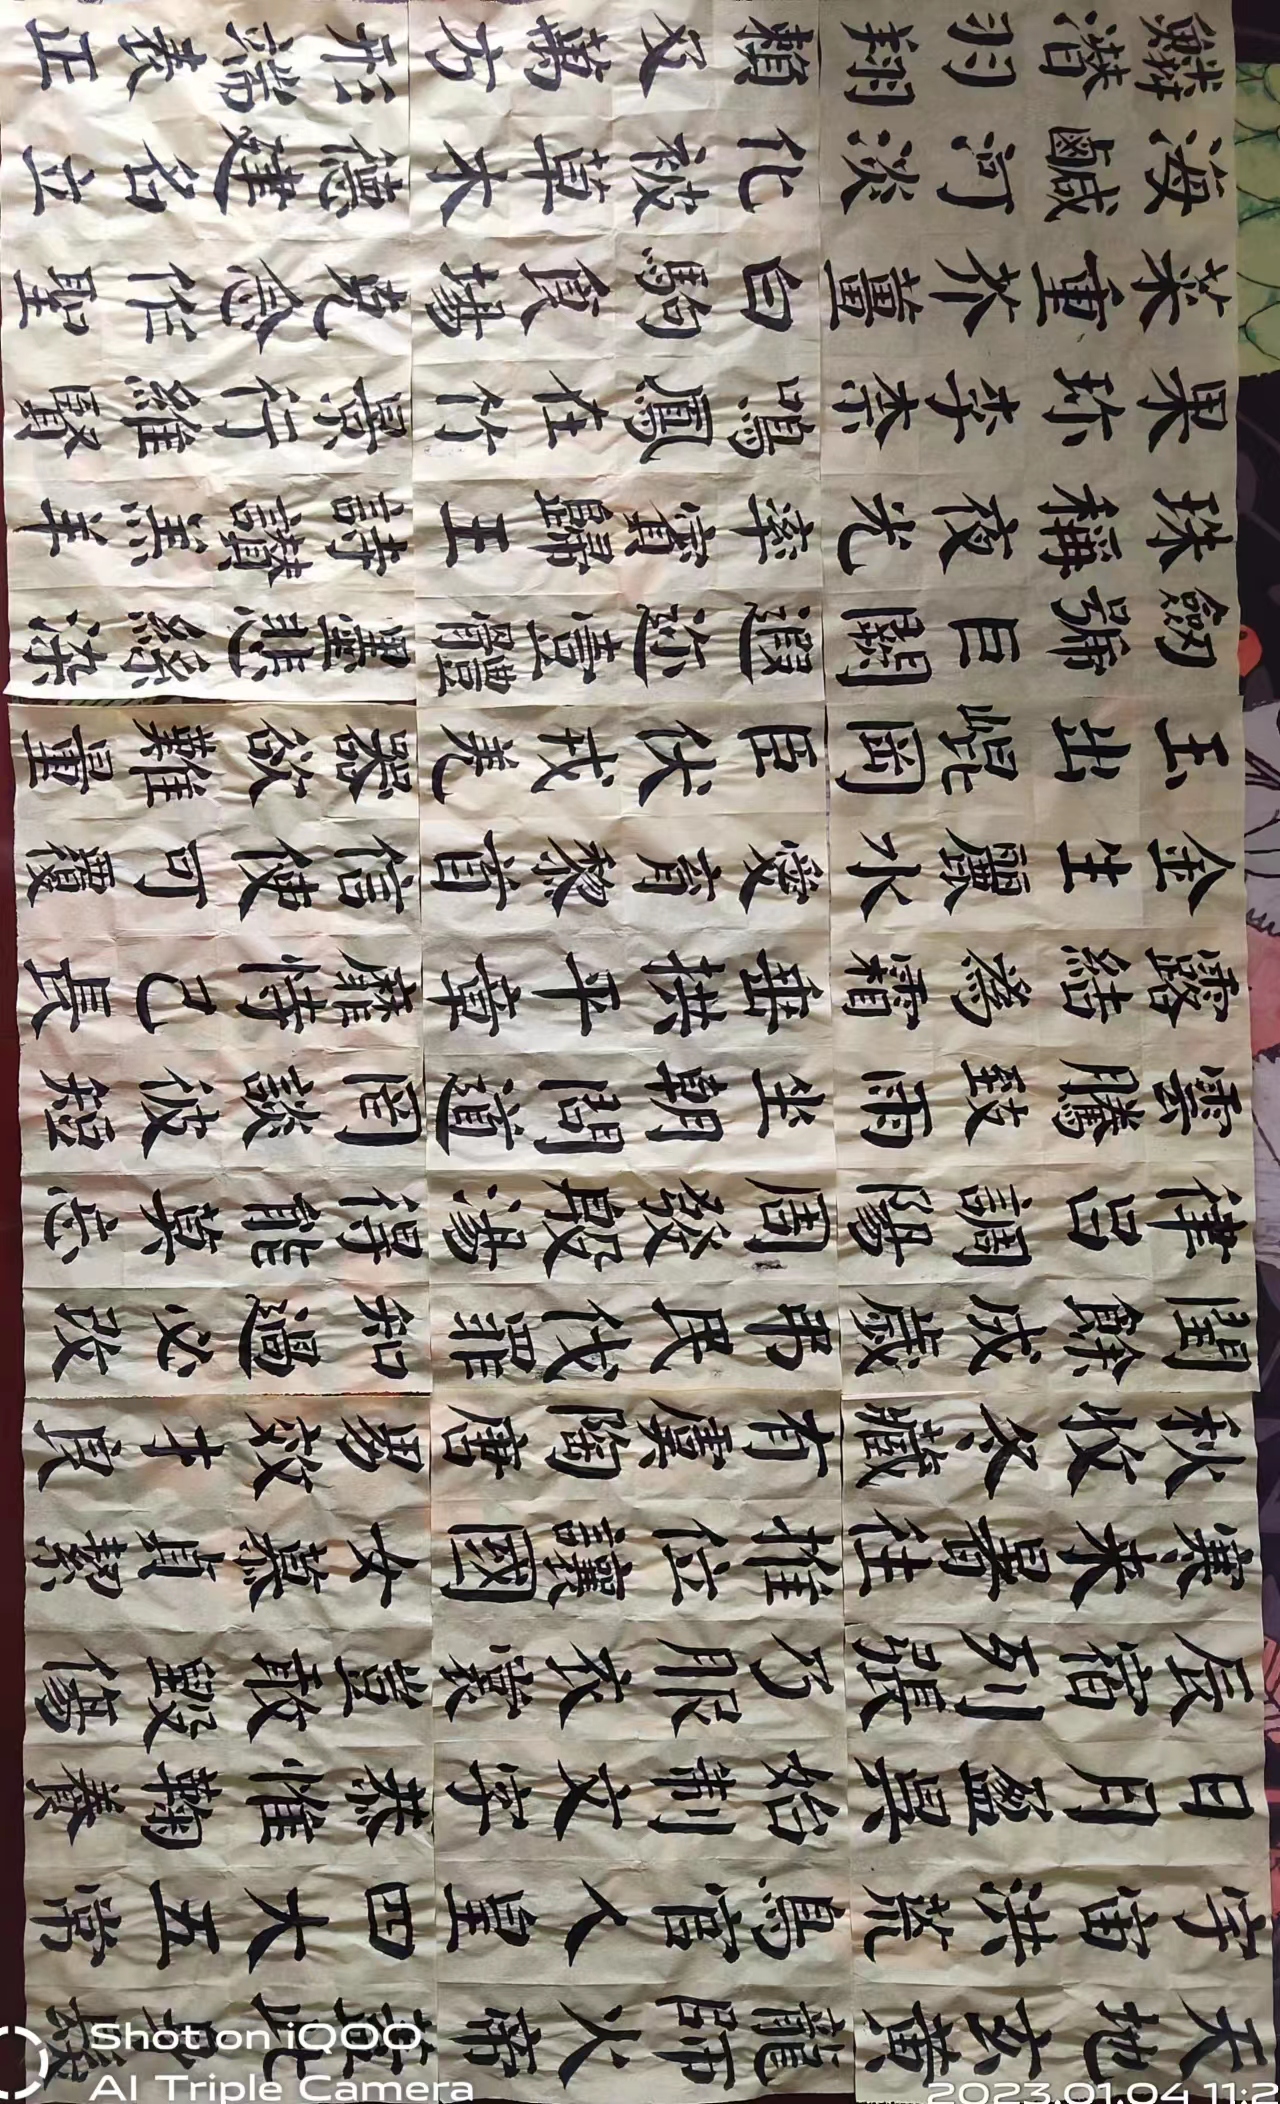 天地玄黃
宇宙洪荒
日月盈昃
辰宿列張
寒來暑往
秋收冬藏
閏餘成歲
律呂調陽
雲騰致雨
露結為霜
金生麗水
玉出崑岡
劍號巨闕
珠稱夜光
果珍李柰
菜重芥薑
海鹹河淡
鱗潛羽翔
龍師火帝
鳥官人皇
始制文字
乃服衣裳
推位讓國
有虞陶唐
弔民伐罪
周發殷湯
坐朝問道
垂拱平章
愛育黎首
臣伏戎羌
遐迩壹體
率賓歸王
鳴鳳在竹
白駒食場
化被草木
賴及萬方
蓋此身髮
四大五常
恭惟鞠養
豈敢毀傷
女慕貞絜
男效才良
知過必改
得能莫忘
罔談彼短
靡恃己長
信使可覆
器欲難量
墨悲絲染
詩讚羔羊
景行維賢
克念作聖
德建名立
形端表正
Shot on iQOO
AI Triple Camera
2023.01.04 11:2